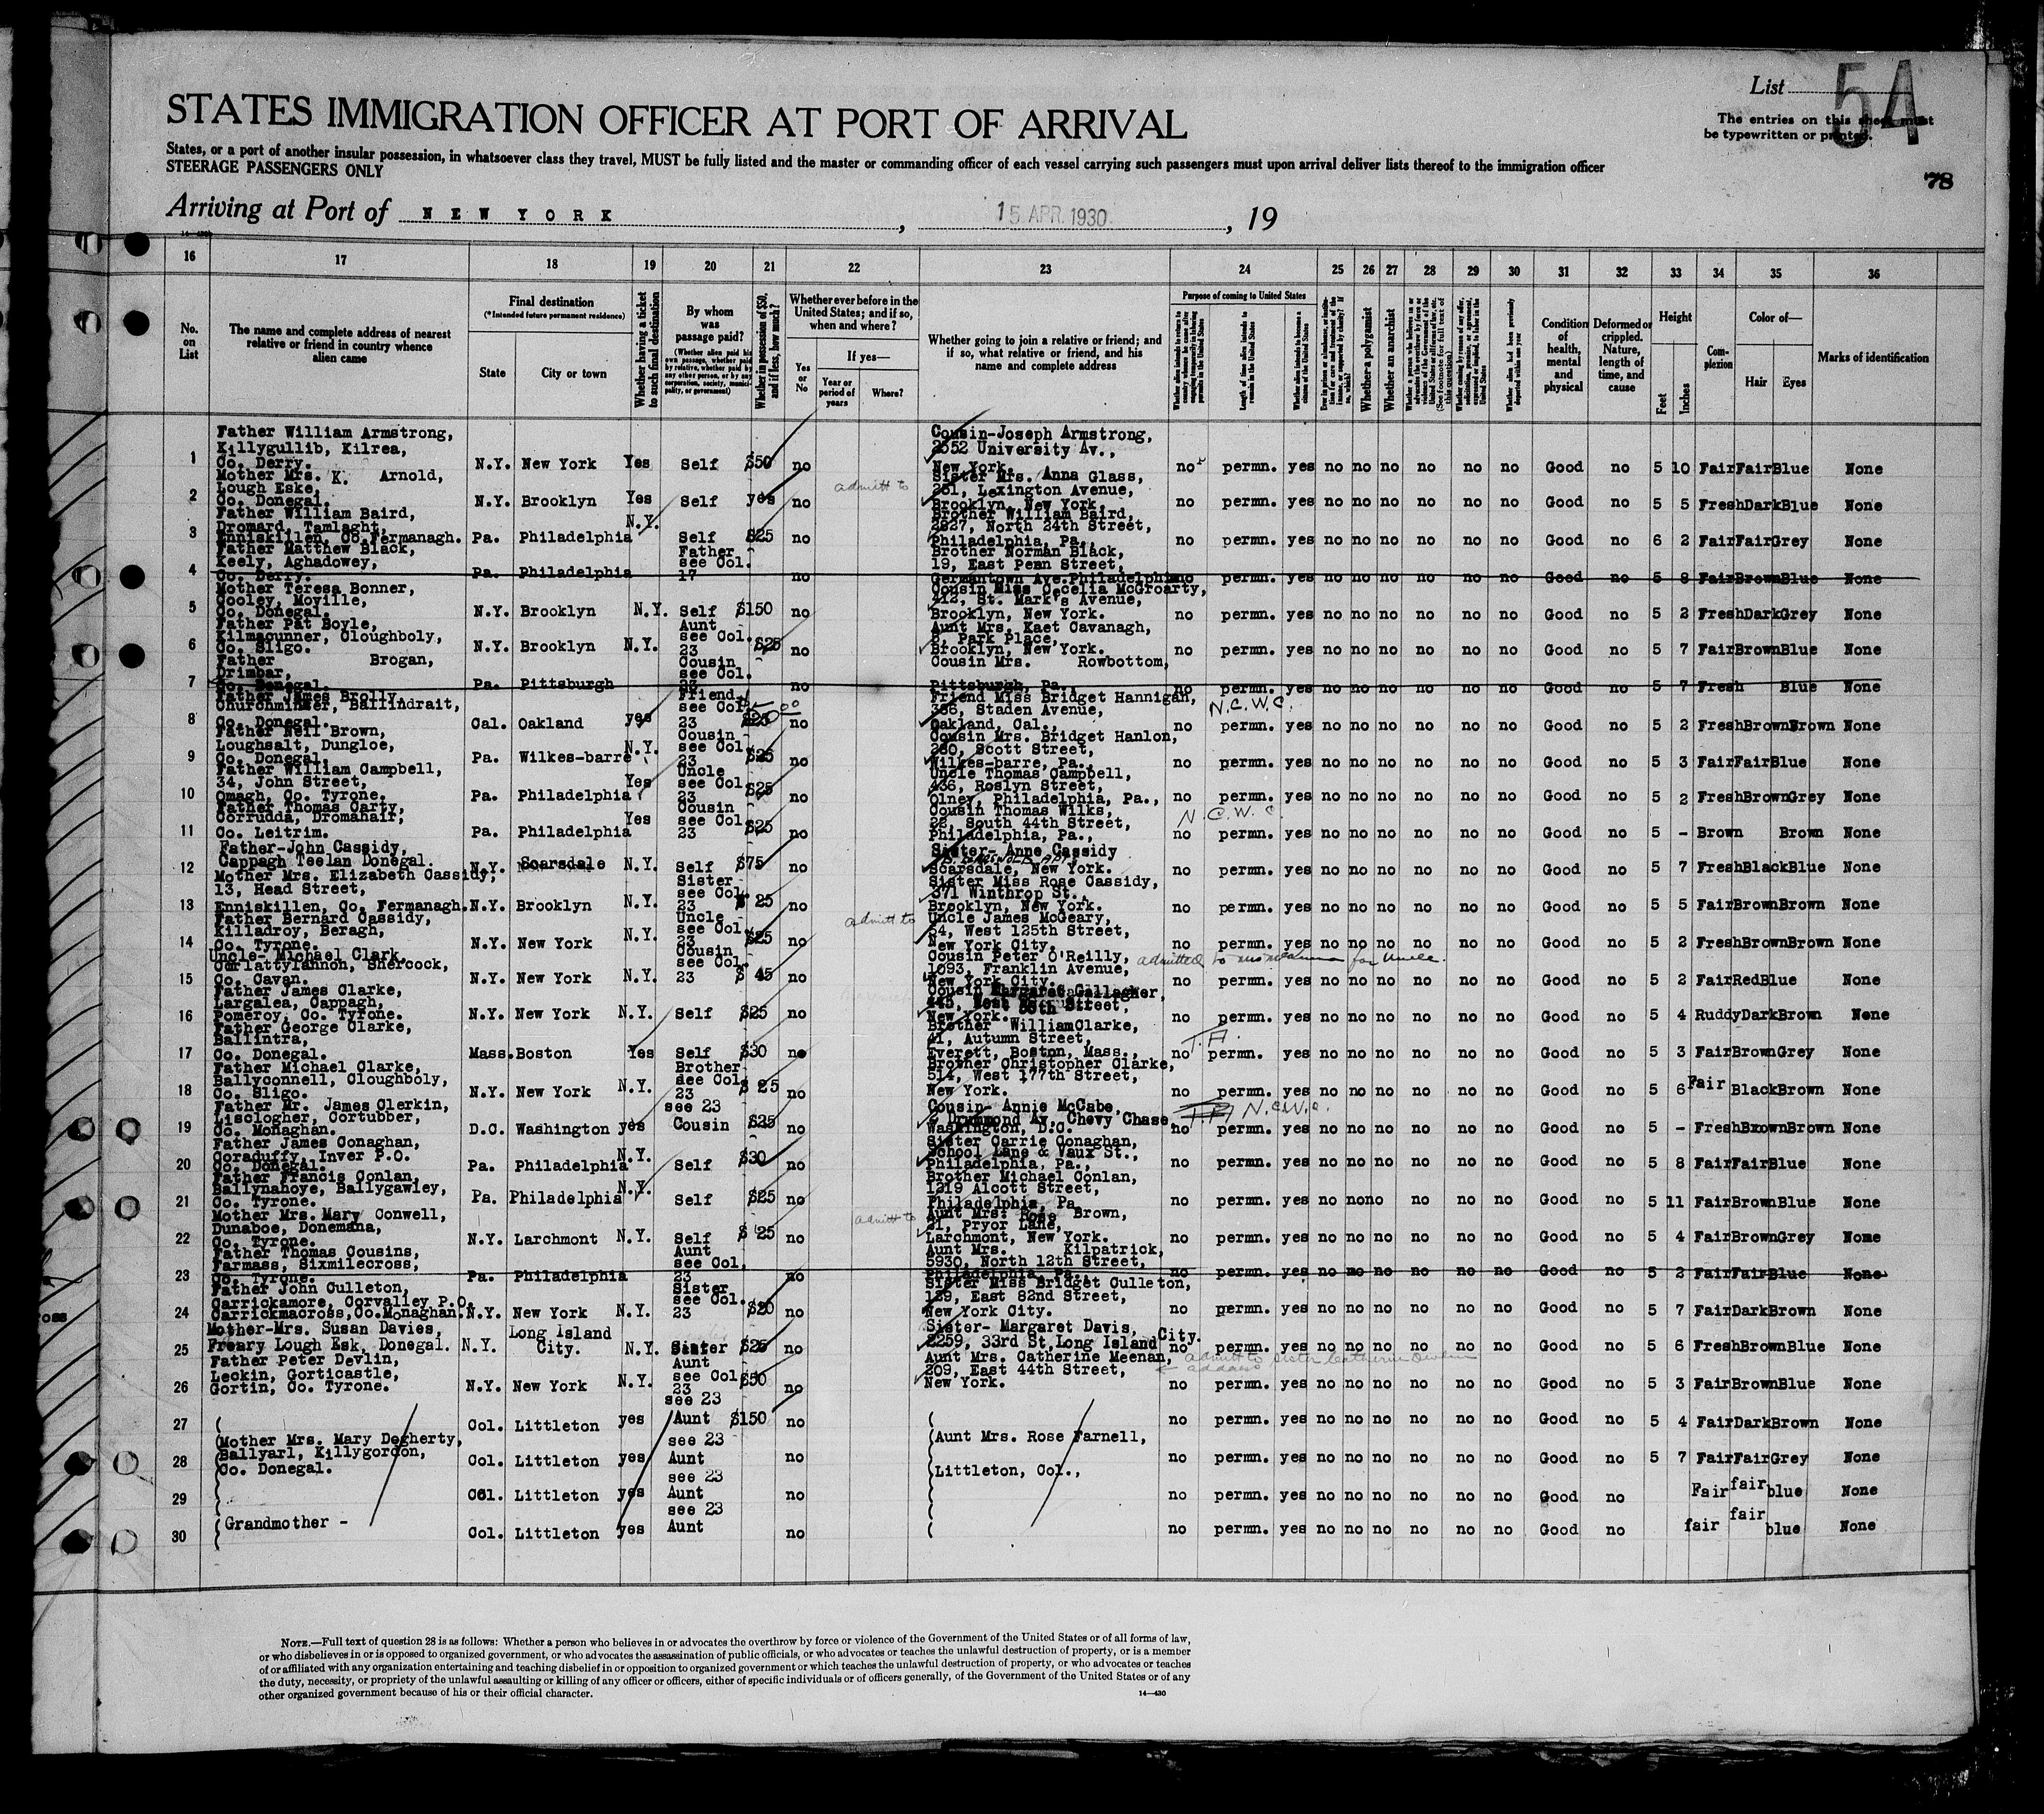 List 54
The entries on this sheet must
be typewritten or printed.
STATES IMMIGRATION OFFICER AT PORT OF ARRIVAL
States, or a port of another insular possession, in whatsoever class they travel, MUST be fully listed and the master or commanding officer of each vessel carrying such passengers must upon arrival deliver lists thereof to the immigration officer
STEERAGE PASSENGERS ONLY
78
Arriving at Port of NEW YORK, 15 APR. 1930, 19
16 17 18 19 20 21 22 23 24 25 26 27 28 29 30 31 32 33 34 35 36
No. on List
The name and complete address of nearest relative or friend in country whence alien came
Final destination
(*Intended future permanent residence)
State
City or town
Whether having a ticket to such final destination
By whom was passage paid?
(Whether alien paid his own passage, whether paid by relative, whether paid by any other person, or by any corporation, society, municipality, or government)
Whether in possession of $50, and if less, how much?
Whether ever before in the United States; and if so, when and where?
Yes or No
If yes—
Year or period of years
Where?
Whether going to join a relative or friend; and if so, what relative or friend, and his name and complete address
Purpose of coming to United States
Length of time alien intends to remain in the United States
Whether alien intends to become a citizen of the United States
Whether a polygamist
Whether an anarchist
Whether alien had been previously deported within one year
Condition of health, mental and physical
Deformed or crippled. Nature, length of time, and cause
Height
Feet
Inches
Complexion
Color of—
Hair
Eyes
Marks of identification
1 Father William Armstrong, Killygullib, Kilrea, Co. Derry. N.Y. New York Yes Self $50 no Cousin-Joseph Armstrong, 2552 University Av., New York. no permn. yes no no no no no no Good no 5 10 Fair Fair Blue None
2 Mother Mrs. K. Arnold, Lough Eske, Co. Donegal. N.Y. Brooklyn Yes Self yes no admitt to Sister Mrs. Anna Glass, 251, Lexington Avenue, Brooklyn, New York. no permn. yes no no no no no no Good no 5 5 Fresh Dark Blue None
3 Father William Baird, Dromard, Tamlaght, Enniskillen, Co. Fermanagh. Pa. Philadelphia N.Y. Self $25 no Brother William Baird, 2827, North 24th Street, Philadelphia, Pa., no permn. yes no no no no no no Good no 6 2 Fair Fair Grey None
4 Father Matthew Black, Keely, Aghadowey, Co. Derry. Pa. Philadelphia Father see Col. 17 no Brother Norman Black, 19, East Penn Street, Germantown Ave. Philadelphia no permn. yes no no no no no no Good no 5 8 Fair Brown Blue None
5 Mother Teresa Bonner, Cooley, Moville, Co. Donegal. N.Y. Brooklyn N.Y. Self $150 no Cousin Miss Cecelia McGroarty, 412, St. Mark's Avenue, Brooklyn, New York. no permn. yes no no no no no no Good no 5 2 Fresh Dark Grey None
6 Father Pat Boyle, Kilmacunner, Cloughboly, Co. Sligo. N.Y. Brooklyn N.Y. Aunt see Col. 23 $25 no Aunt Mrs. Kaet Cavanagh, 8, Park Place, Brooklyn, New York. no permn. yes no no no no no no Good no 5 7 Fair Brown Blue None
7 Father Brogan, Drimbar, Co. Donegal. Pa. Pittsburgh Cousin see Col. 23 no Cousin Mrs. Rowbottom, Pittsburgh, Pa., no permn. yes no no no no no no Good no 5 7 Fresh Blue None
8 Father James Brolly, Churchminster, Ballindrait, Co. Donegal. Cal. Oakland yes Friend see Col. 23 $25 no Friend Miss Bridget Hannigan, 366, Staden Avenue, Oakland, Cal., N.C.W.C. no permn. yes no no no no no no Good no 5 2 Fresh Brown Brown None
9 Father Neil Brown, Loughsalt, Dungloe, Co. Donegal. Pa. Wilkes-barre N.Y. Cousin see Col. 23 $25 no Cousin Mrs. Bridget Hanlon, 280, Scott Street, Wilkes-barre, Pa., no permn. yes no no no no no no Good no 5 3 Fair Fair Blue None
10 Father William Campbell, 34, John Street, Omagh, Co. Tyrone. Pa. Philadelphia Yes Uncle see Col. 23 $25 no Uncle Thomas Campbell, 436, Roslyn Street, Olney, Philadelphia, Pa., no permn. yes no no no no no no Good no 5 2 Fresh Brown Grey None
11 Father Thomas Carty, Corrudda, Dromahair, Co. Leitrim. Pa. Philadelphia Yes Cousin see Col. 23 $25 no Cousin Thomas Wilks, 22, South 44th Street, Philadelphia, Pa., N.C.W.C. no permn. yes no no no no no no Good no 5 - Brown Brown None
12 Father-John Cassidy, Cappagh Teelan Donegal. N.Y. Scarsdale N.Y. Self $75 no Sister- Anne Cassidy Scarsdale, New York. no permn. yes no no no no no no Good no 5 7 Fresh Black Blue None
13 Mother Mrs. Elizabeth Cassidy, 13, Head Street, Enniskillen, Co. Fermanagh. N.Y. Brooklyn N.Y. Sister see Col. 23 $ 25 no Sister Miss Rose Cassidy, 371 Winthrop St., Brooklyn, New York. no permn. yes no no no no no no Good no 5 5 Fair Brown Brown None
14 Father Bernard Cassidy, Killadroy, Beragh, Co. Tyrone. N.Y. New York N.Y. Uncle see Col. 23 $25 no admitt to Uncle James McGeary, 54, West 125th Street, New York City, no permn. yes no no no no no no Good no 5 2 Fresh Brown Brown None
15 Uncle- Michael Clark, Corlattylannon, Shercock, Co. Cavan. N.Y. New York N.Y. Cousin see Col. 23 $ 45 no Cousin Peter O'Reilly, 1093, Franklin Avenue, New York City. admitted to for Uncle. no permn. yes no no no no no no Good no 5 2 Fair Red Blue None
16 Father James Clarke, Largalea, Cappagh, Pomeroy, Co. Tyrone. N.Y. New York N.Y. Self $25 no Cousin Margaret Gallagher, 445, Street, New York. no permn. yes no no no no no no Good no 5 4 Ruddy Dark Brown None
17 Father George Clarke, Ballintra, Co. Donegal. Mass. Boston Yes Self $30 no Brother William Clarke, 41, Autumn Street, Everett, Boston, Mass., T.A. no permn. yes no no no no no no Good no 5 3 Fair Brown Grey None
18 Father Michael Clarke, Ballyconnell, Cloughboly, Co. Sligo. N.Y. New York N.Y. Brother see Col. 23 $ 25 no Brother Christopher Clarke, 514, West 177th Street, New York. no permn. yes no no no no no no Good no 5 6 Fair Black Brown None
19 Father Mr. James Clerkin, Lisclogher, Cortubber, Co. Monaghan. D.C. Washington yes see 23 Cousin $25 no Cousin- Annie McCabe, Drummond Av. Chevy Chase, Washington, D.C. N.C.W.C. no permn. yes no no no no no no Good no 5 - Fresh Brown Brown None
20 Father James Conaghan, Coraduffy, Inver P.O. Co. Donegal. Pa. Philadelphia N.Y. Self $30 no Sister Carrie Conaghan, School Lane & Vaux St., Philadelphia, Pa., no permn. yes no no no no no no Good no 5 8 Fair Fair Blue None
21 Father Francis Conlan, Ballynahoye, Ballygawley, Co. Tyrone. Pa. Philadelphia N.Y. Self $25 no Brother Michael Conlan, 1219 Alcott Street, Philadelphia, Pa. no permn. yes no no no no no no Good no 5 11 Fair Brown Blue None
22 Mother Mrs. Mary Conwell, Dunaboe, Donemana, Co. Tyrone. N.Y. Larchmont N.Y. Self $ 25 no admitt to Aunt Mrs. Rose Brown, 81, Pryor Lane, Larchmont, New York. no permn. yes no no no no no no Good no 5 4 Fair Brown Grey None
23 Father Thomas Cousins, Farmass, Sixmilecross, Co. Tyrone. Pa. Philadelphia Aunt see Col. 23 no Aunt Mrs. Kilpatrick, 5930, North 12th Street, Philadelphia, Pa., no permn. yes no no no no no no Good no 5 2 Fair Fair Blue None
24 Father John Culleton, Carrickamore, Corvalley P.O. Carrickmacross, Co. Monaghan. N.Y. New York N.Y. Sister see Col. 23 $20 no Sister Miss Bridget Culleton, 129, East 82nd Street, New York City. no permn. yes no no no no no no Good no 5 7 Fair Dark Brown None
25 Mother-Mrs. Susan Davies, Freary Lough Esk, Donegal. N.Y. Long Island City. N.Y. Sister $25 no Sister- Margaret Davis, 2259, 33rd St, Long Island City. no permn. yes no no no no no no Good no 5 6 Fresh Brown Blue None
26 Father Peter Devlin, Leckin, Gorticastle, Gortin, Co. Tyrone. N.Y. New York N.Y. Aunt see Col. 23 $50 no Aunt Mrs. Catherine Meenan, 209, East 44th Street, New York. admitt to sister Catherine Devlin address no permn. yes no no no no no no Good no 5 3 Fair Brown Blue None
27 Col. Littleton yes see 23 Aunt $150 no no permn. yes no no no no no no Good no 5 4 Fair Dark Brown None
28 Mother Mrs. Mary Degherty, Ballyarl, Killygordon, Co. Donegal. Col. Littleton yes see 23 Aunt no Aunt Mrs. Rose Farnell, Littleton, Col., no permn. yes no no no no no no Good no 5 7 Fair Fair Grey None
29 Col. Littleton yes see 23 Aunt no no permn. yes no no no no no no Good no Fair fair blue None
30 Grandmother - Col. Littleton yes see 23 Aunt no no permn. yes no no no no no no Good no fair fair blue None
NOTE.—Full text of question 28 is as follows: Whether a person who believes in or advocates the overthrow by force or violence of the Government of the United States or of all forms of law,
or who disbelieves in or is opposed to organized government, or who advocates the assassination of public officials, or who advocates or teaches the unlawful destruction of property, or is a member
of or affiliated with any organization entertaining and teaching disbelief in or opposition to organized government or which teaches the unlawful destruction of property, or who advocates or teaches
the duty, necessity, or propriety of the unlawful assaulting or killing of any officer or officers, either of specific individuals or of officers generally, of the Government of the United States or of any
other organized government because of his or their official character.
14—430